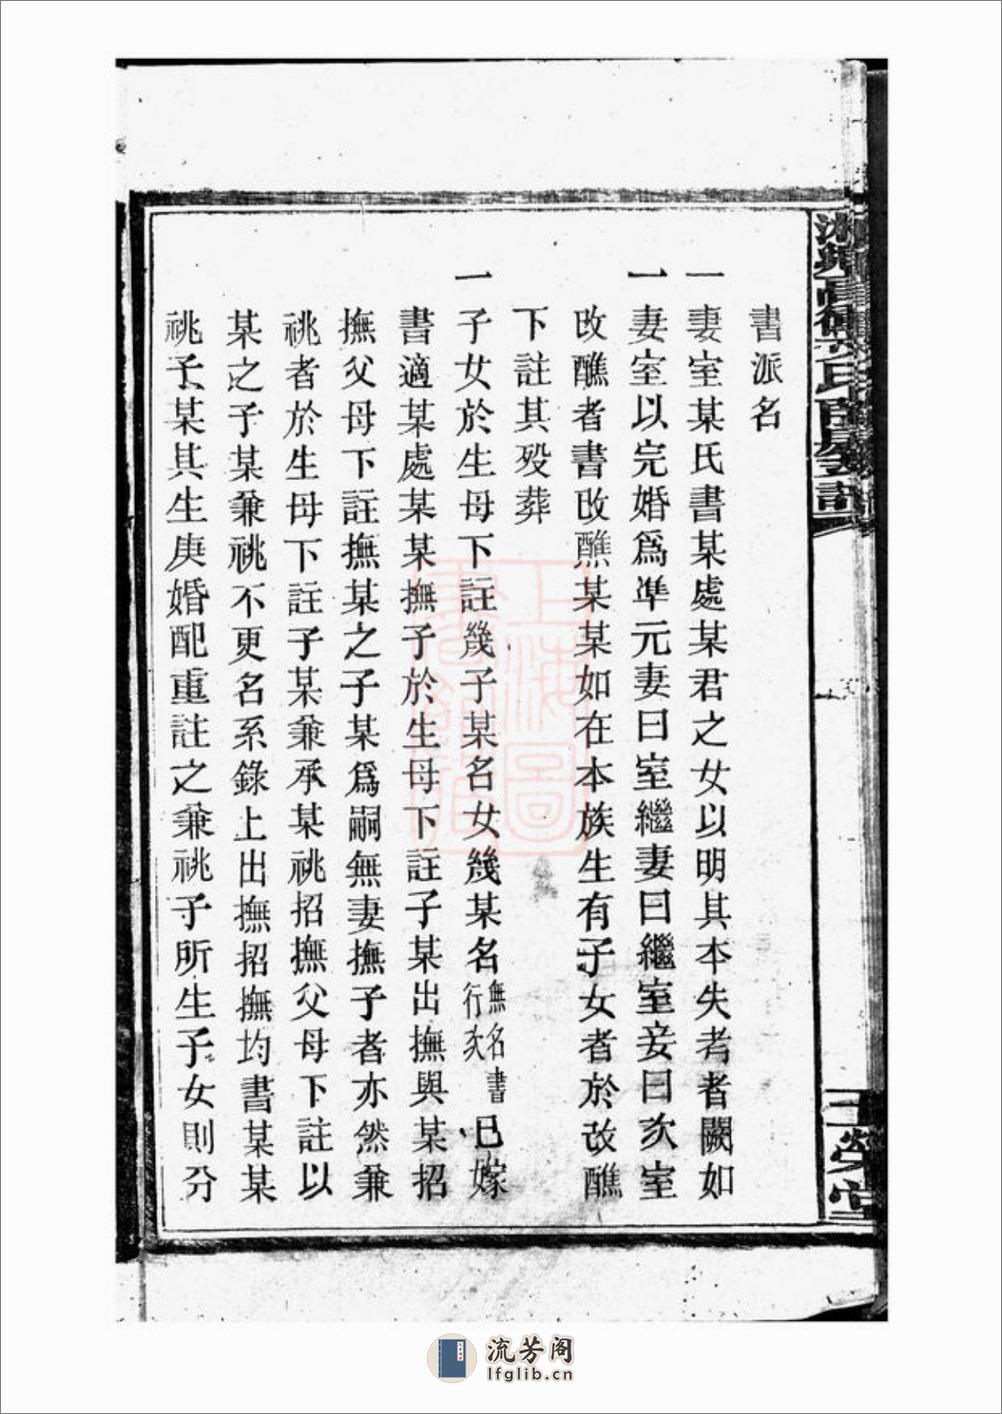 書派名
一妻室某氏書某處某君之女以明其本失考者闕如
一妻室以完婚爲準元妻曰室繼妻曰繼室妾曰次室
改醮者書改醮某某如在本族生有子女者於改醮
下註其歿葬
一子女於生母下註幾子某名女幾某名無名書行次已嫁
書適某處某某撫子於生母下註子某出撫與某招
撫父母下註撫某之子某爲嗣無妻撫子者亦然兼
祧者於生母下註子某兼承某祧招撫父母下註以
某之子某兼祧不更名系錄上出撫招撫均書某某
祧子某其生庚婚配重註之兼祧子所生子女則分
上海圖書館藏
流芳阁
lfglib.cn